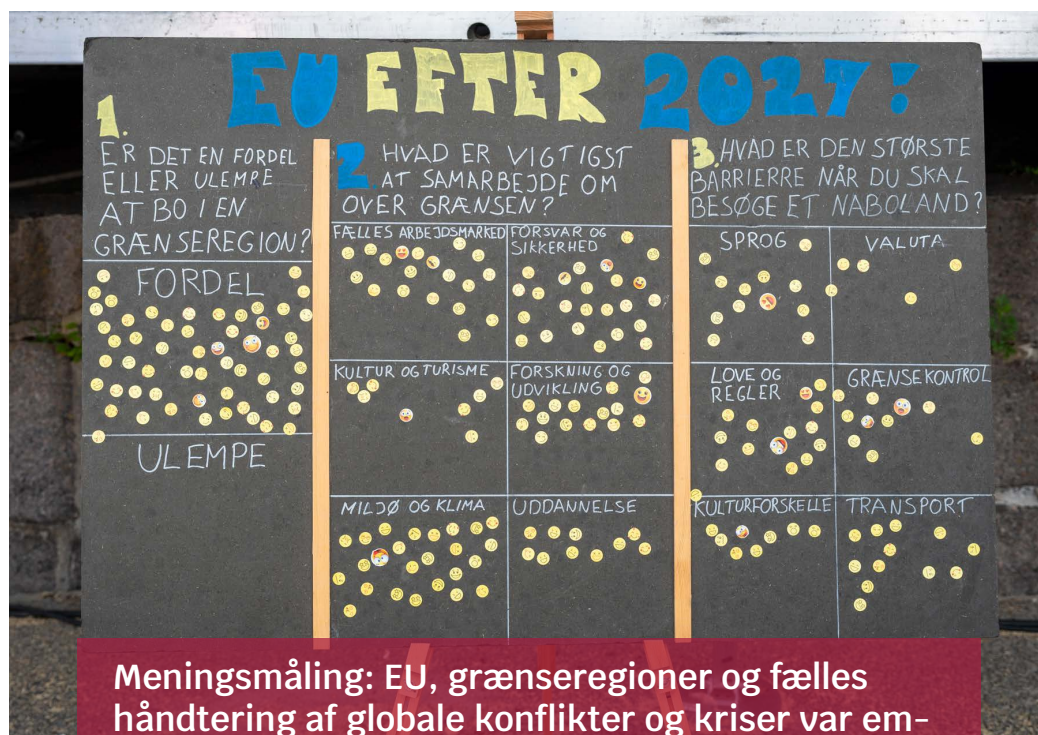 EU EFTER 2027!
1.
ER DET EN FORDEL
ELLER ULEMPE
AT BO I EN
GRÆNSEREGION?
FORDEL
ULEMPE
2. HVAD ER VIGTIGST
AT SAMARBEJDE OM
OVER GRÆNSEN?
FÆLLES ARBEJDSMARKED
FORSVAR OG
SIKKERHED
KULTUR OG TURISME
FORSKNING OG
UDVIKLING
MILJØ OG KLIMA
UDDANNELSE
3. HVAD ER DEN STØRSTE
BARRIERRE NÅR DU SKAL
BESØGE ET NABOLAND?
SPROG
VALUTA
LOVE OG
REGLER
GRÆNSEKONTROL
KULTURFORSKELLE
TRANSPORT
Meningsmåling: EU, grænseregioner og fælles
håndtering af globale konflikter og kriser var em-